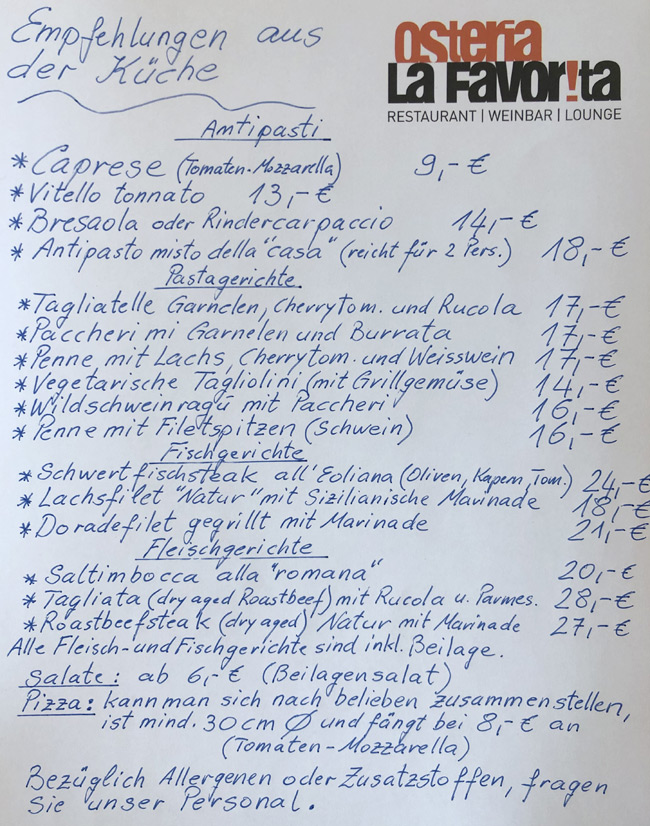 Empfehlungen aus
der Küche
Osteria
La Favor!ta
RESTAURANT | WEINBAR | LOUNGE
Antipasti
* Caprese (Tomaten-Mozzarella) 9,-€
* Vitello tonnato 13,-€
* Bresaola oder Rindercarpaccio 14,-€
* Antipasto misto della "casa" (reicht für 2 Pers.) 18,-€
Pastagerichte
* Tagliatelle Garnelen, Cherrytom. und Rucola 17,-€
* Paccheri mi Garnelen und Burrata 17,-€
* Penne mit Lachs, Cherrytom. und Weisswein 17,-€
* Vegetarische Tagliolini (mit Grillgemüse) 14,-€
* Wildschweinragú mit Paccheri 16,-€
* Penne mit Filetspitzen (Schwein) 16,-€
Fischgerichte
* Schwertfischsteak all'Eoliana (Oliven, Kapern, Tom.) 24,-€
* Lachsfilet "Natur" mit Sizilianische Marinade 18,-€
* Doradefilet gegrillt mit Marinade 21,-€
Fleischgerichte
* Saltimbocca alla "romana" 20,-€
* Tagliata (dry aged Roastbeef) mit Rucola u. Parmes. 28,-€
* Roastbeefsteak (dry aged) Natur mit Marinade 27,-€
Alle Fleisch-und Fischgerichte sind inkl. Beilage.
Salate: ab 6,-€ (Beilagensalat)
Pizza: kann man sich nach belieben zusammenstellen,
ist mind. 30 cm Ø und fängt bei 8,-€ an
(Tomaten-Mozzarella)
Bezüglich Allergenen oder Zusatzstoffen, fragen
Sie unser Personal.